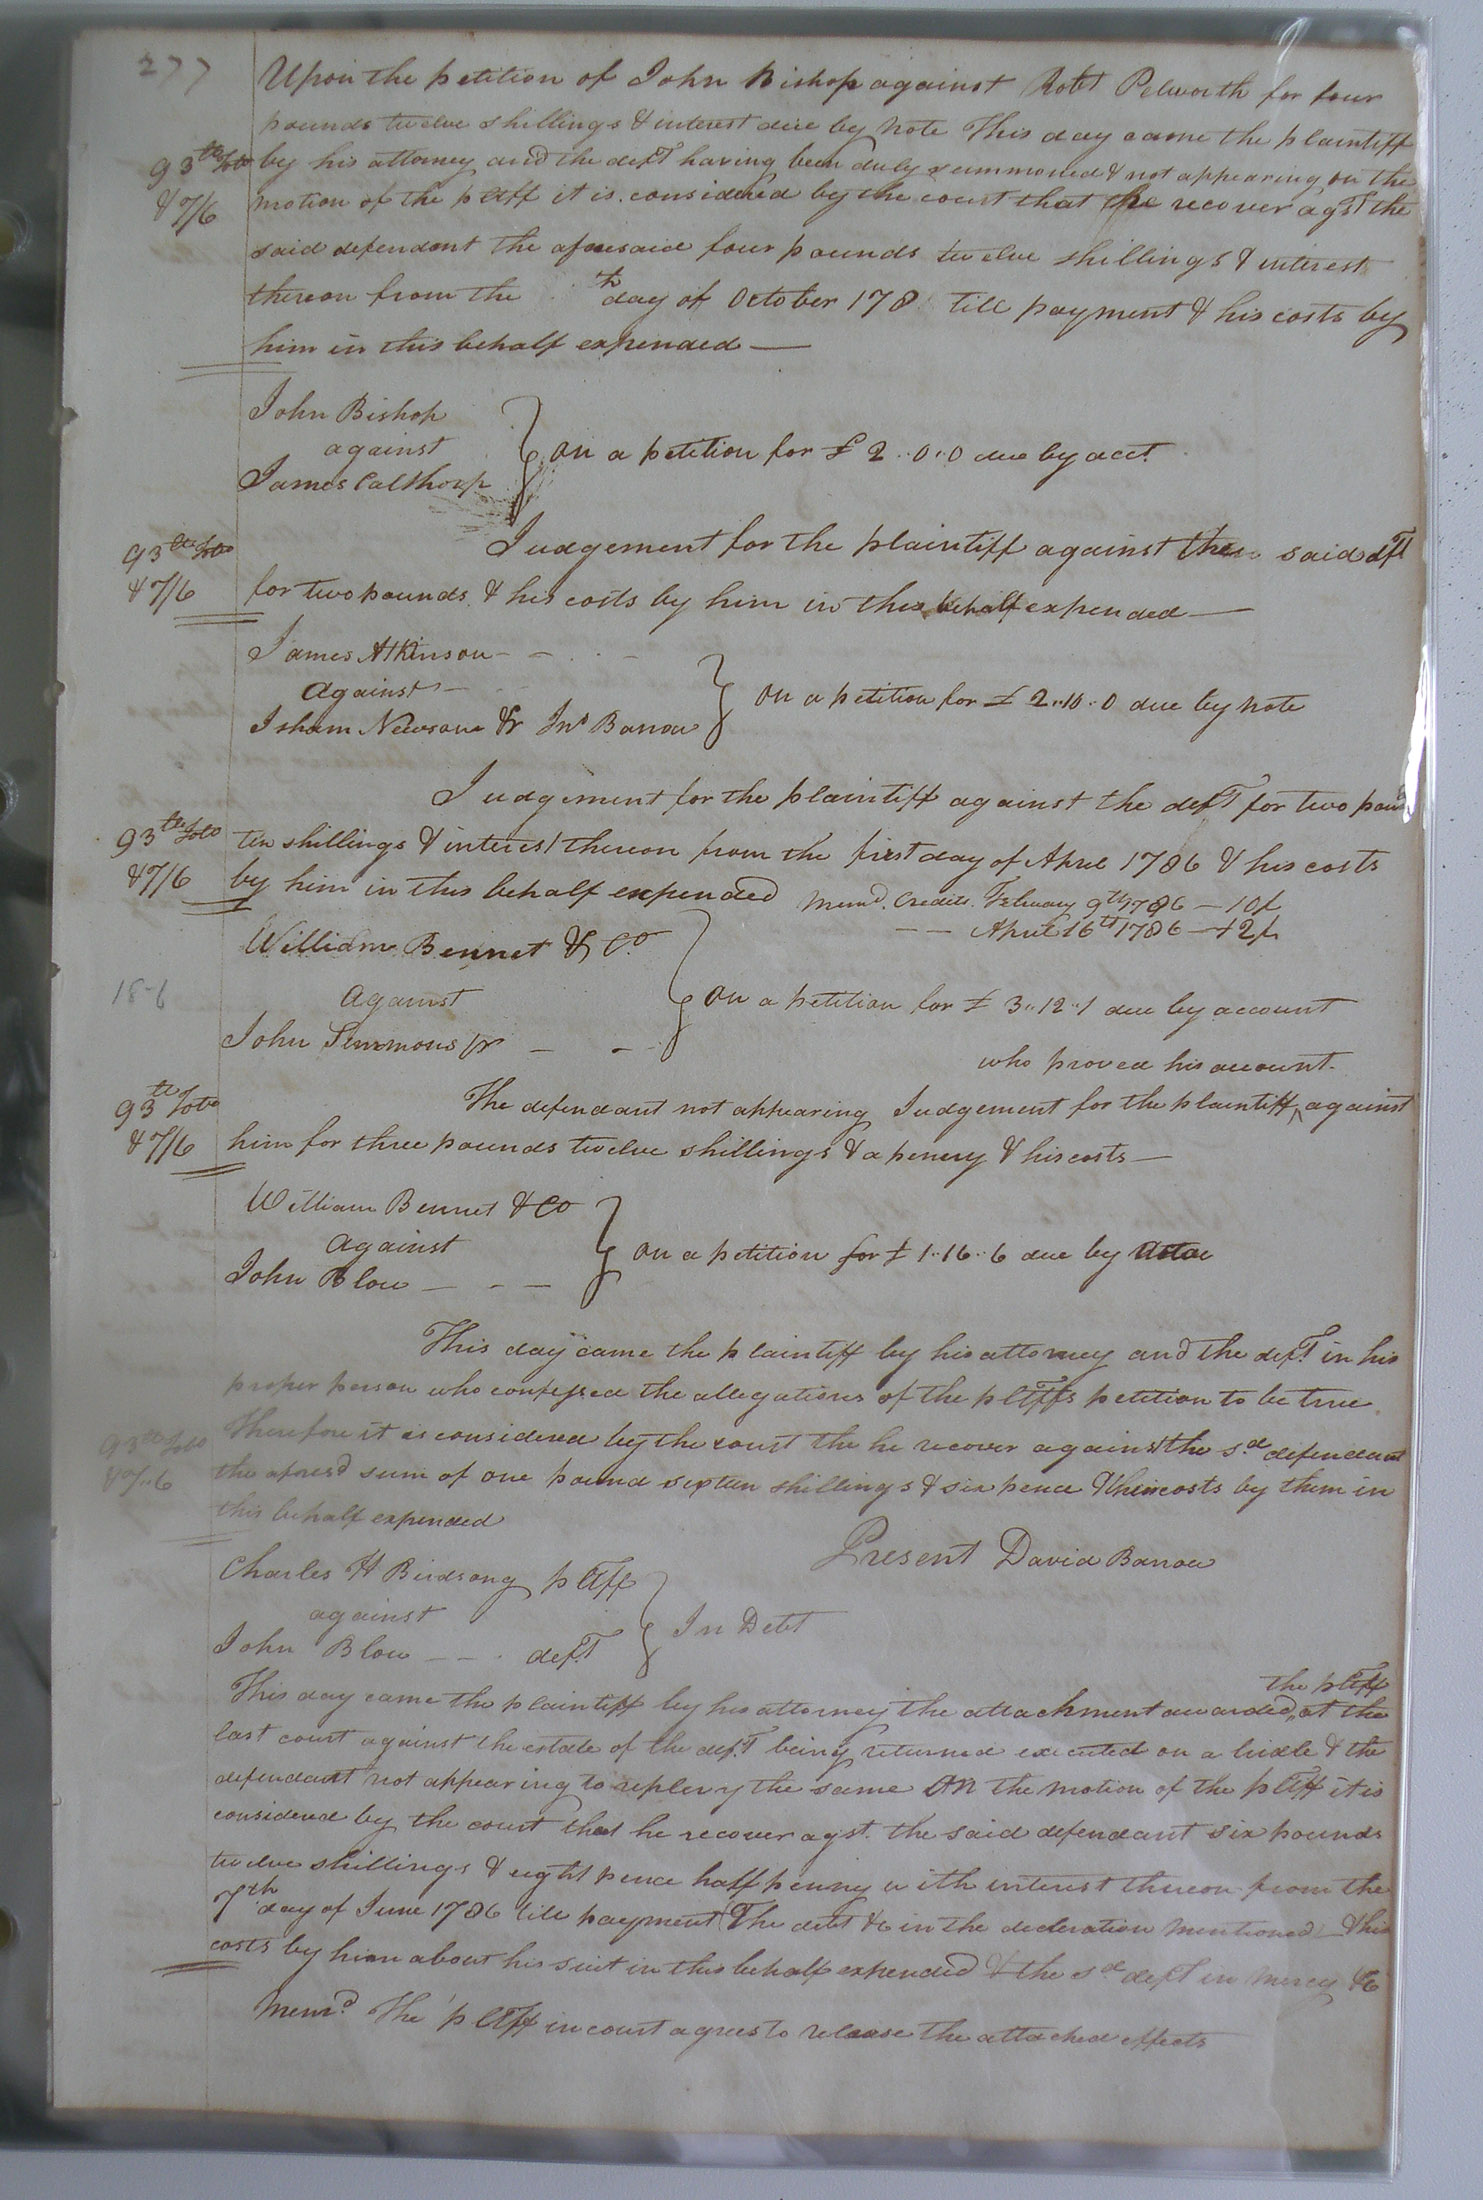 277
Upon the petition of John Bishop against Robt Pelworth for four
pounds twelve shillings & interest due by note This day came the plaintiff
93 lb Tobo
by his attorney and the deft having been duly summoned & not appearing on the
& 7/6
motion of the pltff it is considered by the court that he recover agst the
said defendant the aforesaid four pounds twelve shillings & interest
thereon from the th day of October 178 till payment & his costs by
him in this behalf expended —
John Bishop
against
James Calthorp
on a petition for £ 2..0..0 due by acct.
93 lb Tobo
Judgement for the plaintiff against the said dft
& 7/6
for two pounds & his costs by him in this behalf expended —
James Atkinson - -
against -
Isham Newsom & Jno Barrow
on a petition for £ 2..10..0 due by note
Judgement for the plaintiff against the deft for two pounds
93 lb Tobo
ten shillings & interest thereon from the first day of April 1786 & his costs
& 7/6
by him in this behalf expended Memd. Credits. February 9th 1786 — 10/
— — April 16th 1786 — 12/
William Bennet & Co
18-6
against
John Simmons Jr - -
on a petition for £ 3..12..1 due by account
who proved his account.
93 lb Tobo
The defendant not appearing Judgement for the plaintiff ^ against
& 7/6
him for three pounds twelve shillings & a penny & his costs —
William Bennet & Co
against
John Blow — - —
on a petition for £ 1..16..6 due by
This day came the plaintiff by his attorney and the deft. in his
proper person who confessed the allegations of the pltffs petition to be true
93 lb Tobo
Therefore it is considered by the court the he recover against the sd. defendant
& 7/6
the aforesd sum of one pound sixteen shillings & six pence & their costs by them in
this behalf expended
Present David Barrow
Charles H Birdsong pltff
against
John Blow — - . deft
In Debt
the pltff
This day came the plaintiff by his attorney the attachment awarded ^ at the
last court against the estate of the deft. being returned executed on a & the
defendant not appearing to replevy the same on the motion of the pltff it is
considered by the court that he recover agst. the said defendant six pounds
twelve shillings & eight pence half penny with interest thereon from the
7th day of June 1786 till payment The debt &c in the declaration mentioned & his
costs by him about his suit in this behalf expended & the sd deft in mercy &c
Memd. The pltff in court agrees to release the attached effects